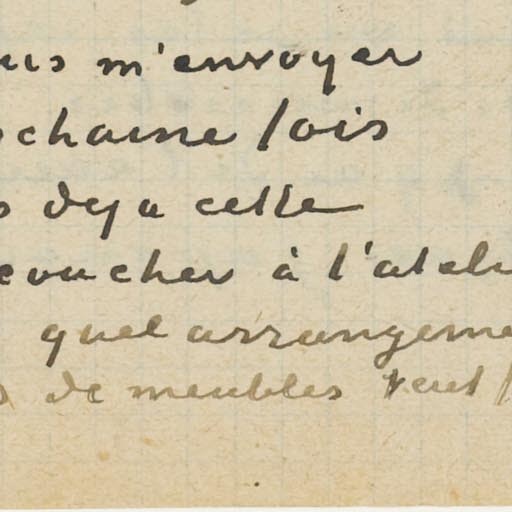 us m'envoyer
chaine fois
deja cette
coucher à l'ateli
quel arrangeme
de meubles peut